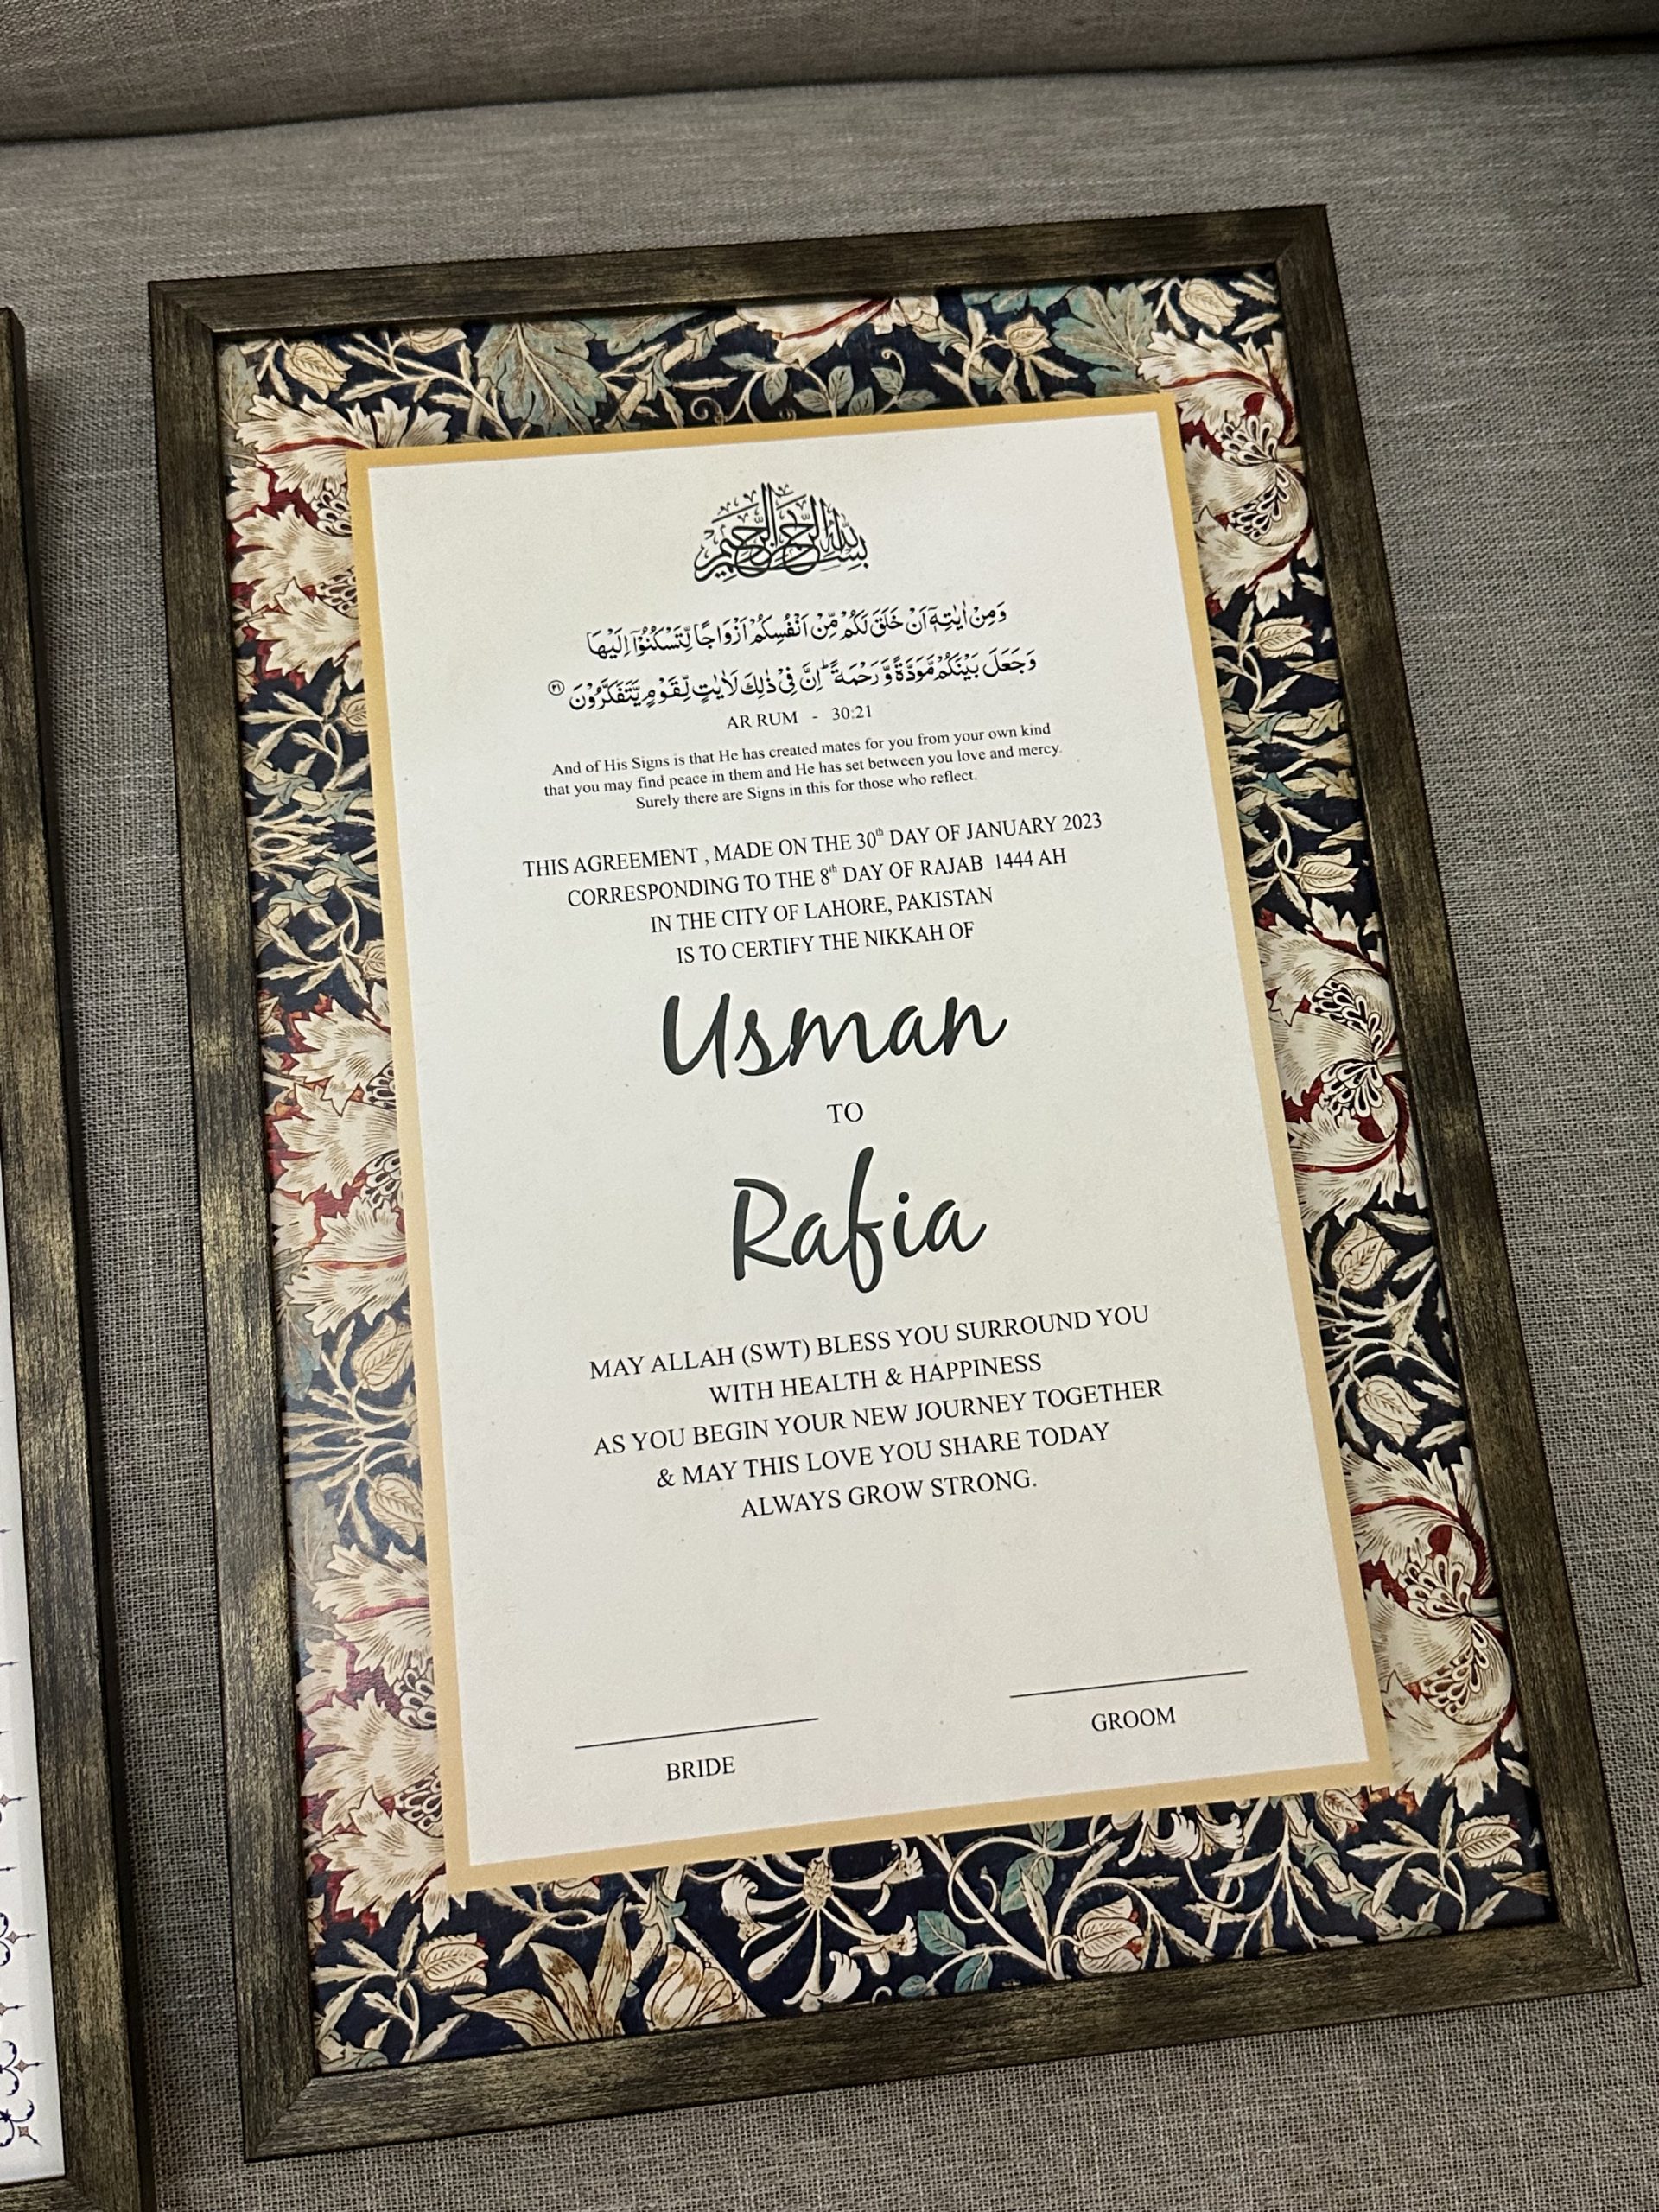 بسم الله الرحمن الرحيم
وَمِنْ اٰيٰتِهٖۤ اَنْ خَلَقَ لَكُمْ مِّنْ اَنْفُسِكُمْ اَزْوَاجًا لِّتَسْكُنُوْۤا اِلَيْهَا
وَجَعَلَ بَيْنَكُمْ مَّوَدَّةً وَّرَحْمَةً ؕ اِنَّ فِيْ ذٰلِكَ لَاٰيٰتٍ لِّقَوْمٍ يَّتَفَكَّرُوْنَ ۲۱
AR RUM - 30:21
And of His Signs is that He has created mates for you from your own kind
that you may find peace in them and He has set between you love and mercy.
Surely there are Signs in this for those who reflect.
THIS AGREEMENT , MADE ON THE 30th DAY OF JANUARY 2023
CORRESPONDING TO THE 8th DAY OF RAJAB 1444 AH
IN THE CITY OF LAHORE, PAKISTAN
IS TO CERTIFY THE NIKKAH OF
Usman
TO
Rafia
MAY ALLAH (SWT) BLESS YOU SURROUND YOU
WITH HEALTH & HAPPINESS
AS YOU BEGIN YOUR NEW JOURNEY TOGETHER
& MAY THIS LOVE YOU SHARE TODAY
ALWAYS GROW STRONG.
BRIDE
GROOM